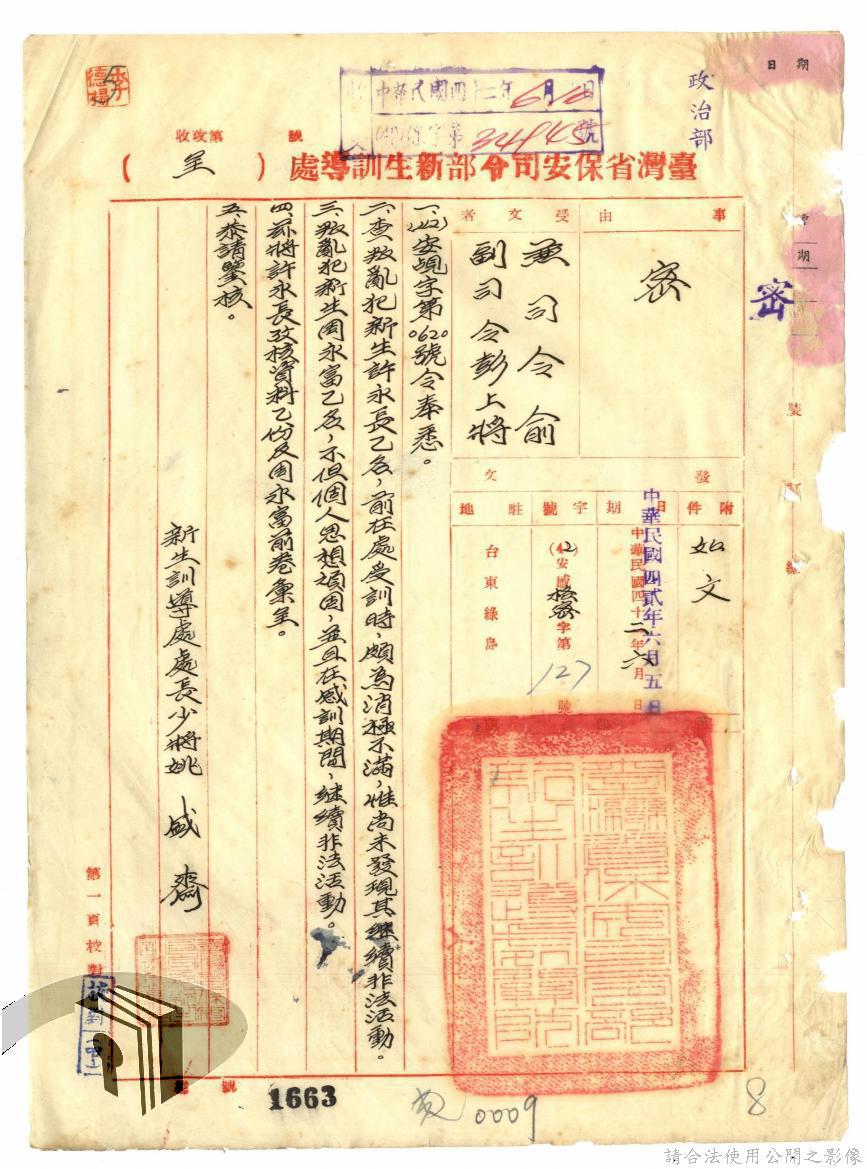 日期
政治部
中華民國四十二年6月10日
字第34945號
李德楊
第攷收號
臺灣省保安司令部新生訓導處（呈）
事由
密
密
受文者
兼司令俞
副司令彭上將
附件
如文
發文
日期
中華民國四十二年六月日
中華民國四貳年六月五日
字號
(42)安感字第127號
駐地
台東綠島
一、(42)安字第0620號令奉悉。
二、查叛亂犯新生許永長乙名，前在處受訓時，頗為消極不滿，惟尚未發現其継續非法活動。
三、叛亂犯新生周永富乙名，不但個人思想頑固，並且在感訓期間，継續非法活動。
四、茲將許永長攷核資料乙份及周永富前卷彙呈。
五、恭請鑒核。
新生訓導處處長少將姚盛齋
第一頁校對
裝訂線
1663
0009
8
請合法使用公開之影像